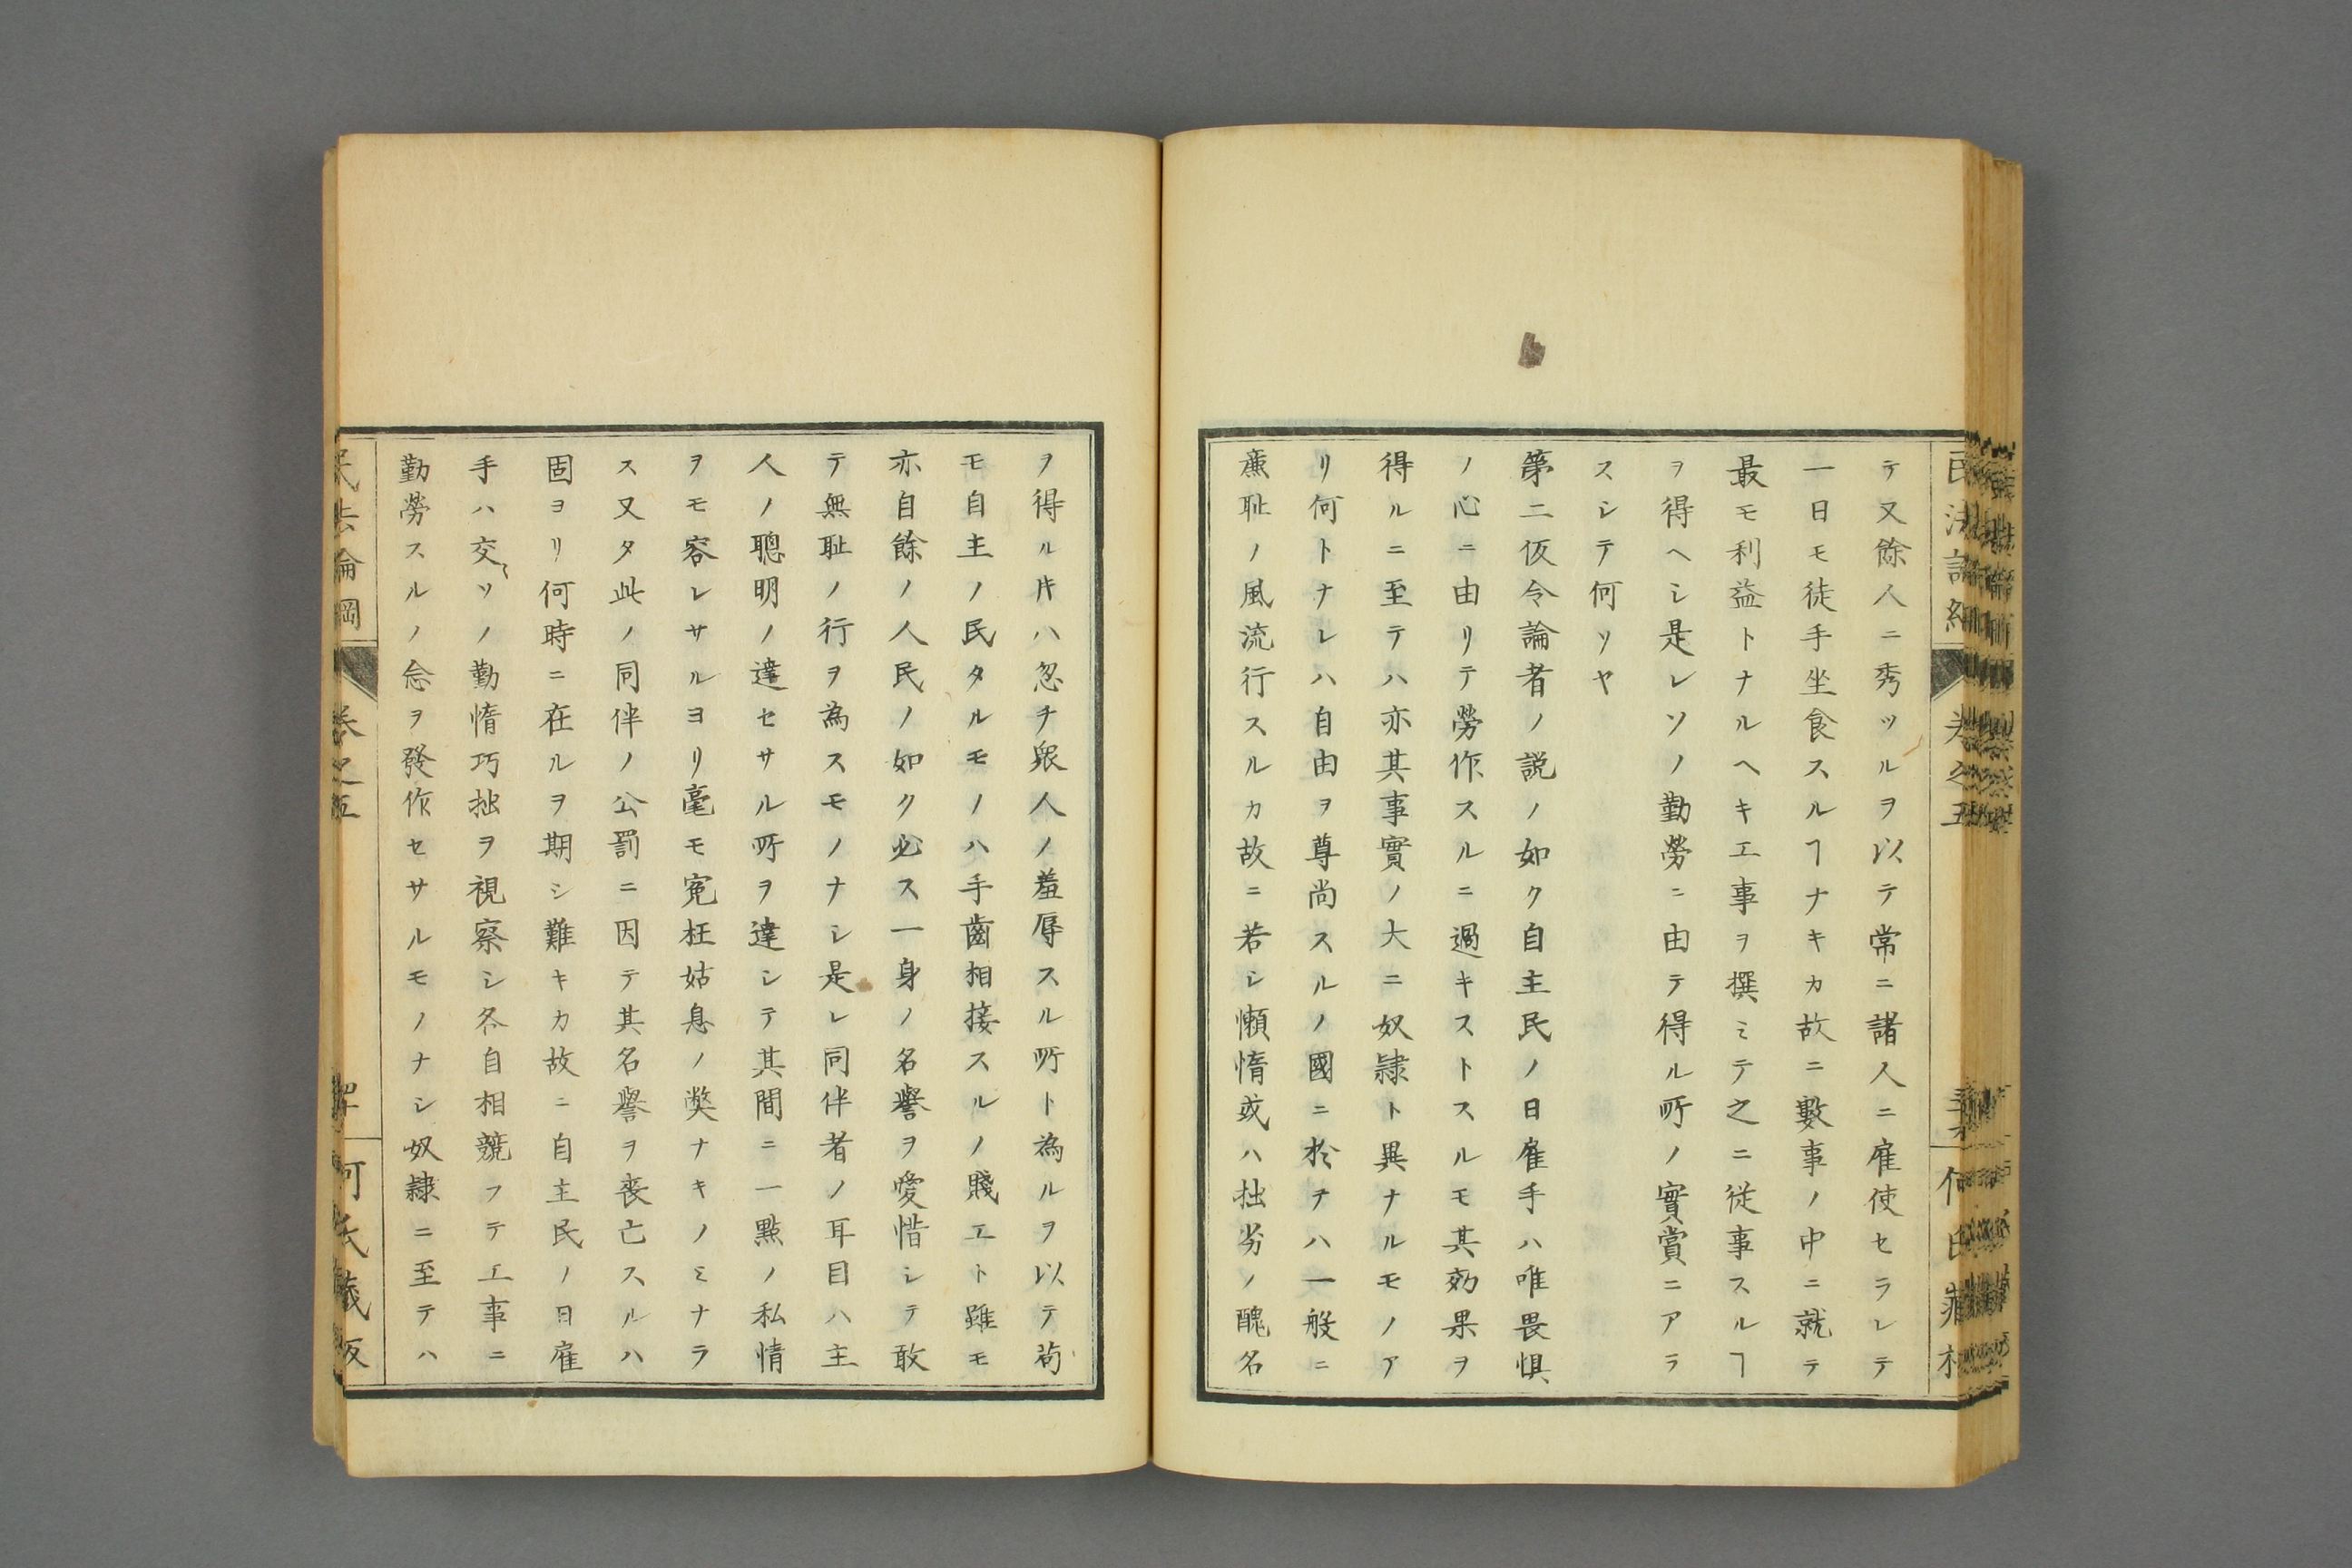 テ又餘人ニ秀ツルヲ以テ常ニ諸人ニ雇使セラレテ
一日モ徒手坐食スルヿナキカ故ニ數事ノ中ニ就テ
最モ利益トナルヘキ工事ヲ撰ミテ之ニ從事スルヿ
ヲ得ヘシ是レソノ勤勞ニ由テ得ル所ノ實賞ニアラ
スシテ何ソヤ
第二仮令論者ノ説ノ如ク自主民ノ日雇手ハ唯畏惧
ノ心ニ由リテ勞作スルニ過キストスルモ其効果ヲ
得ルニ至テハ亦其事實ノ大ニ奴隷ト異ナルモノア
リ何トナレハ自由ヲ尊尚スルノ國ニ於テハ一般ニ
廉耻ノ風流行スルカ故ニ若シ懶惰或ハ拙劣ノ醜名
ヲ得ル片ハ忽チ衆人ノ羞辱スル所ト為ルヲ以テ苟
モ自主ノ民タルモノハ手齒相接スルノ賤工ト雖モ
亦自餘ノ人民ノ如ク必ス一身ノ名譽ヲ愛惜シテ敢
テ無耻ノ行ヲ為スモノナシ是レ同伴者ノ耳目ハ主
人ノ聰明ノ達セサル所ヲ達シテ其間ニ一點ノ私情
ヲモ容レサルヨリ毫モ寃枉姑息ノ獘ナキノミナラ
ス又タ此ノ同伴ノ公罰ニ因テ其名譽ヲ喪亡スルハ
固ヨリ何時ニ在ルヲ期シ難キカ故ニ自主民ノ日雇
手ハ交〻ソノ勤惰巧拙ヲ視察シ各自相競フテ工事ニ
勤勞スルノ念ヲ發作セサルモノナシ奴隷ニ至テハ
民法論綱 卷之五 何氏藏板